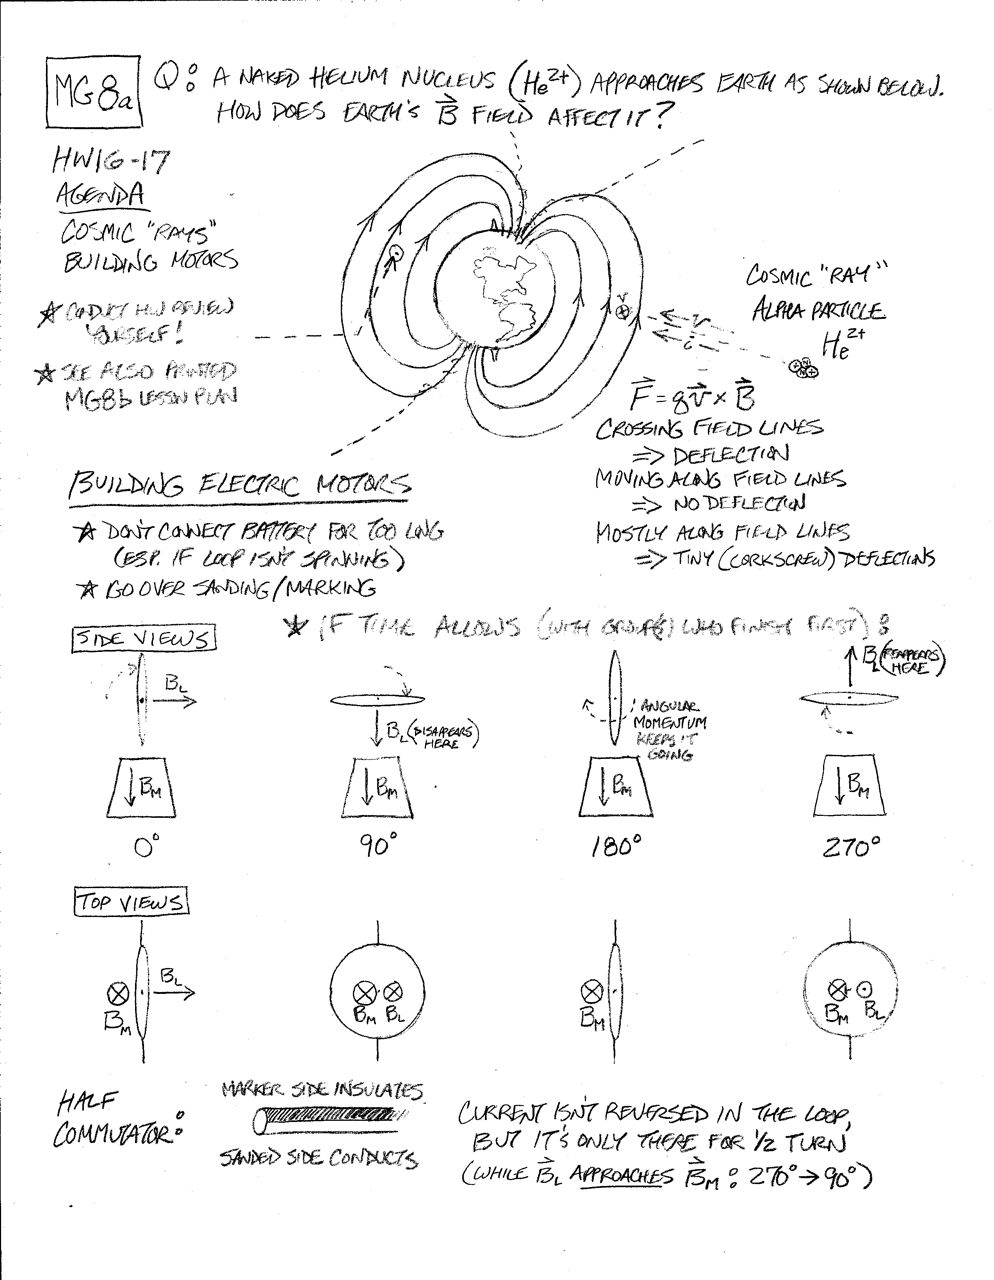 MG8a
Q: A NAKED HELIUM NUCLEUS (He²⁺) APPROACHES EARTH AS SHOWN BELOW.
HOW DOES EARTH'S B⃗ FIELD AFFECT IT?
HW16-17
AGENDA
COSMIC "RAYS"
BUILDING MOTORS
★ CONDUCT HW REVIEW
YOURSELF!
★ SEE ALSO PRINTED
MG8b LESSON PLAN
COSMIC "RAY"
ALPHA PARTICLE
He²⁺
v
i
F⃗ = qv⃗ × B⃗
CROSSING FIELD LINES
⇒ DEFLECTION
MOVING ALONG FIELD LINES
⇒ NO DEFLECTION
MOSTLY ALONG FIELD LINES
⇒ TINY (CORKSCREW) DEFLECTIONS
BUILDING ELECTRIC MOTORS
★ DON'T CONNECT BATTERY FOR TOO LONG
(ESP. IF LOOP ISN'T SPINNING)
★ GO OVER SANDING/MARKING
★ IF TIME ALLOWS (WITH GROUP(S) WHO FINISH FIRST):
SIDE VIEWS
B_L
B_L (DISAPPEARS
HERE)
ANGULAR
MOMENTUM
KEEPS IT
GOING
B_L (REAPPEARS
HERE)
B_M
B_M
B_M
B_M
0°
90°
180°
270°
TOP VIEWS
B_L
B_M
B_M B_L
B_M
B_M B_L
HALF
COMMUTATOR:
MARKER SIDE INSULATES
SANDED SIDE CONDUCTS
CURRENT ISN'T REVERSED IN THE LOOP,
BUT IT'S ONLY THERE FOR 1/2 TURN
(WHILE B⃗_L APPROACHES B⃗_M: 270° → 90°)